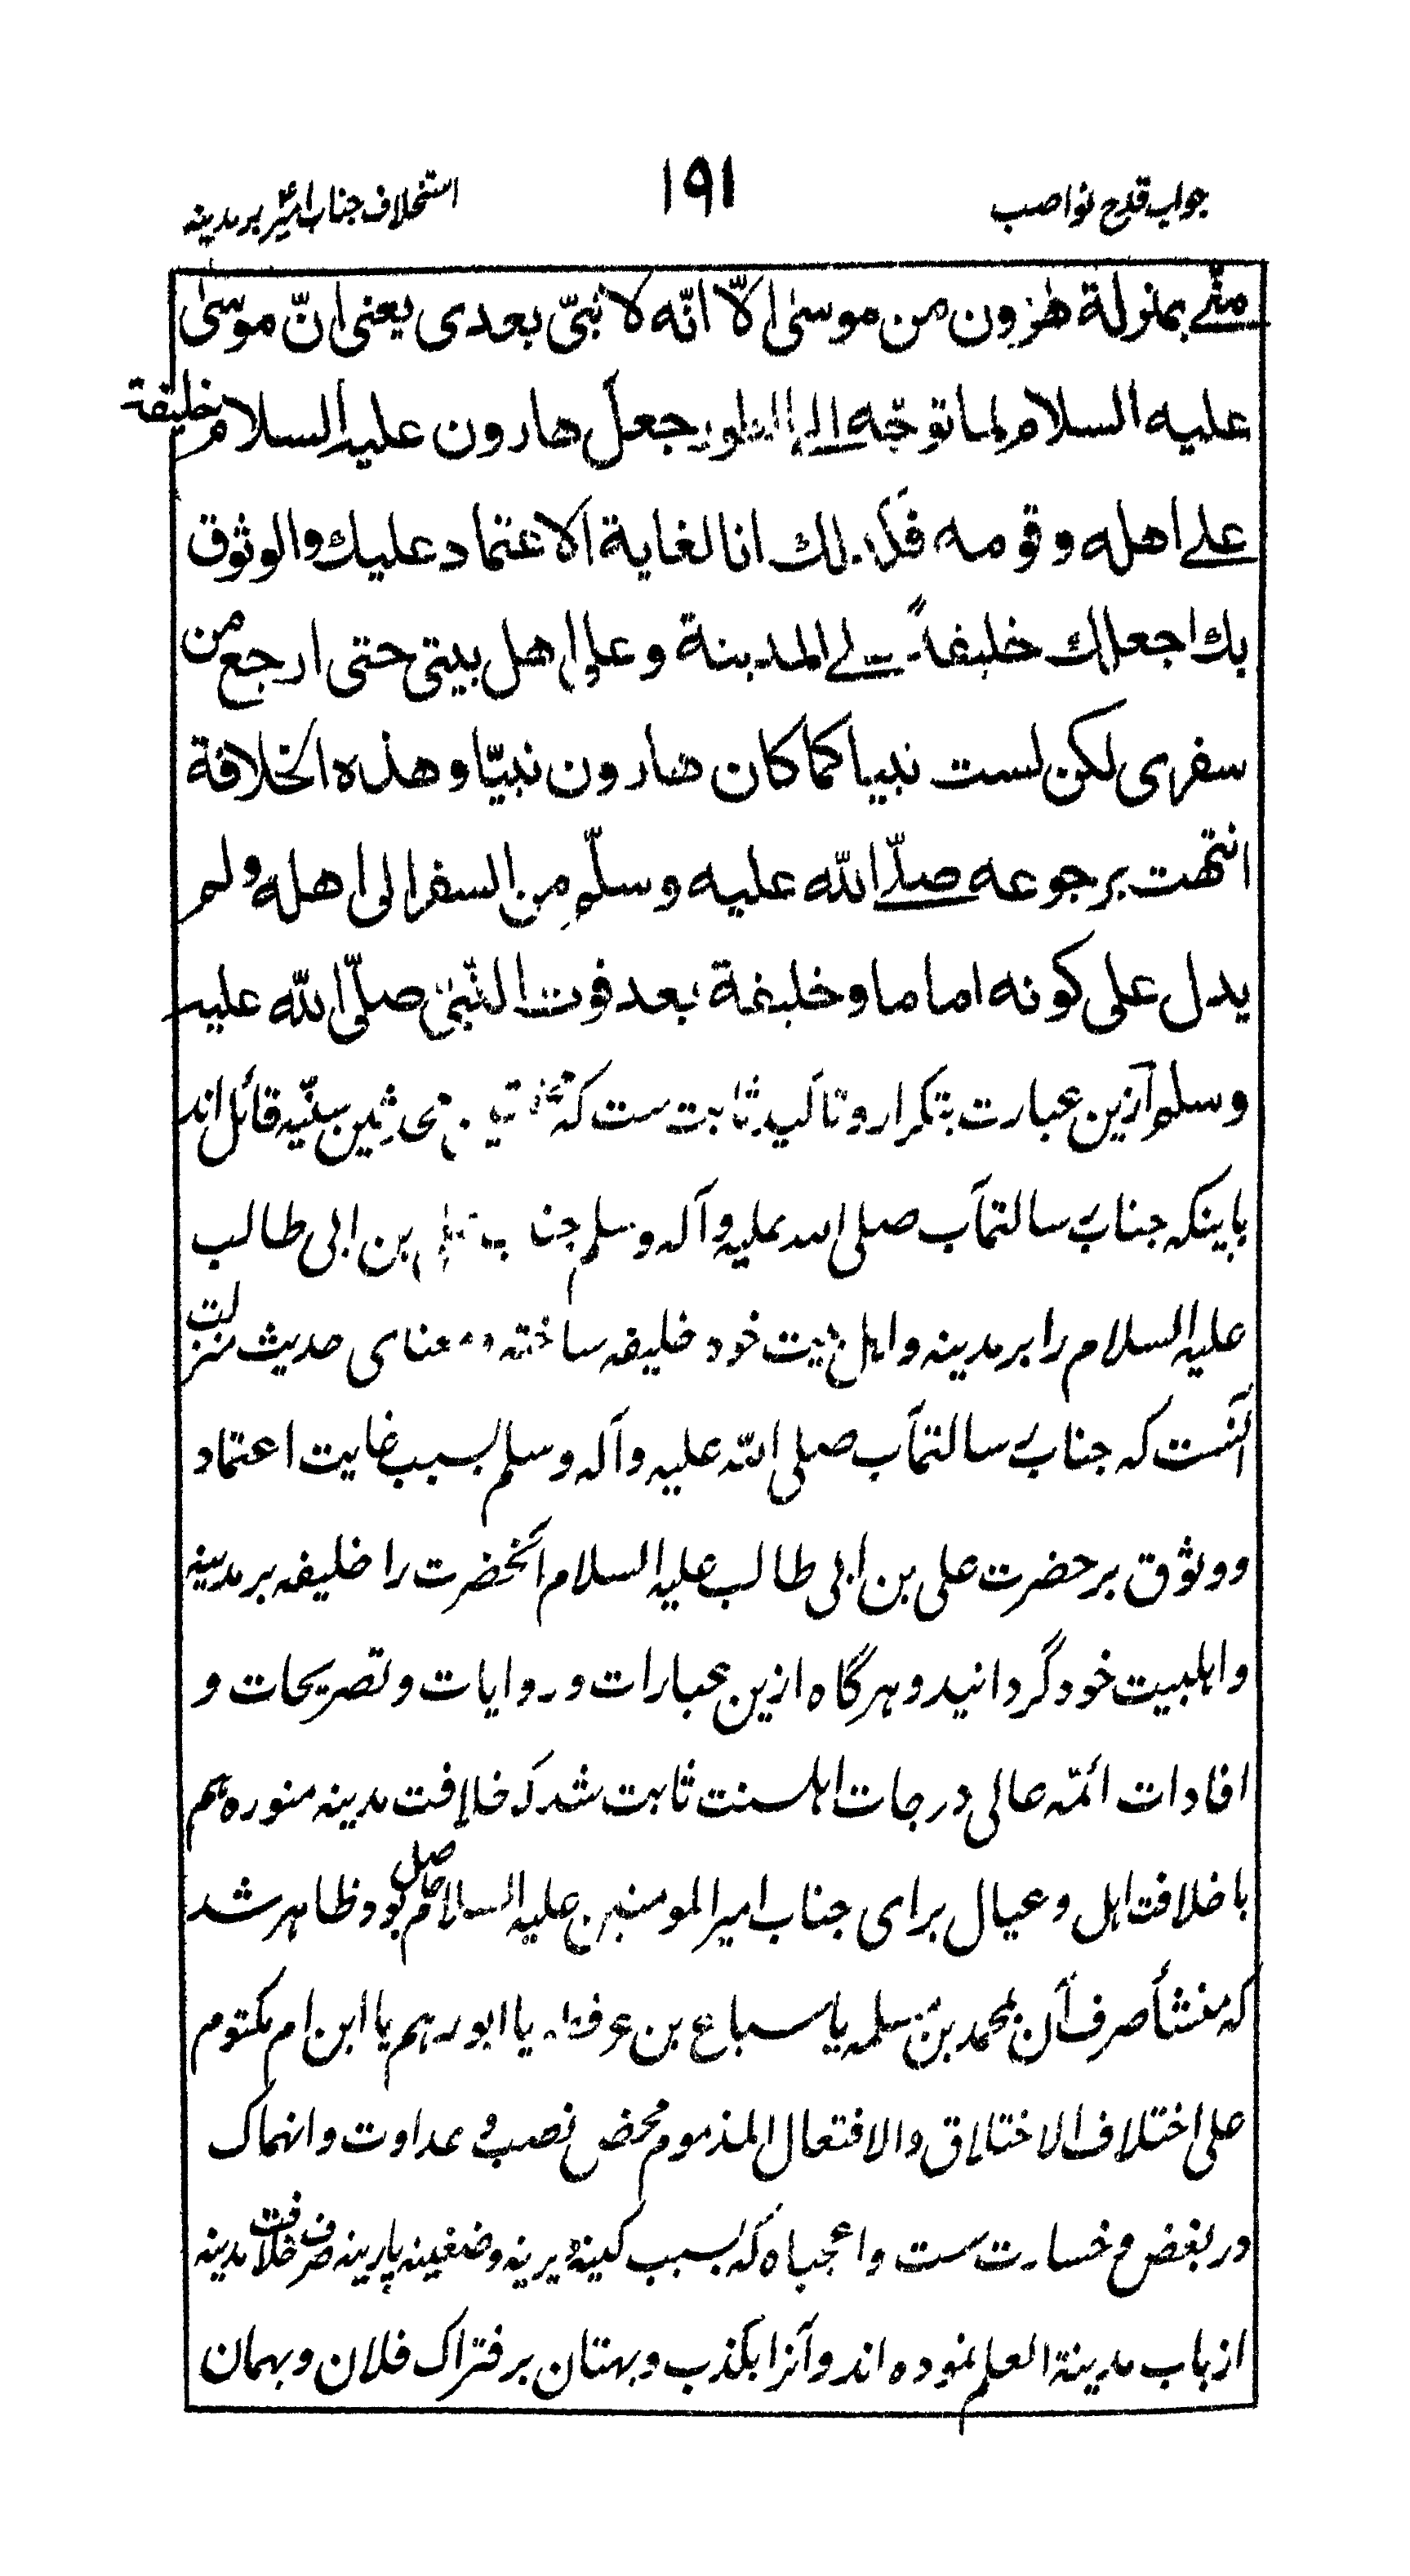 جواب قدح نواصب
١٩١
استخلاف جناب امیرؑ بر مدینه
منّے بمنزلة هٰرون من موسیٰ الّا انّه لا نبیّ بعدی یعنی انّ موسیٰ
علیه السلام لما توجّه الی الطور جعل هارون علیه السلام خلیفة
علے اهله وقومه فکذلك انا لغایة الاعتماد علیك والوثوق
بك اجعلك خلیفةً فے المدینة وعلی اهل بیتی حتی ارجع من
سفری لکن لست نبیا کما کان هارون نبیّا وهذه الخلافة
انتهت برجوعه صلّے الله علیه وسلّم من السفر الی اهله ولم
یدل علی کونه اماما وخلیفة بعد فوت النّبیّ صلّی الله علیه
وسلم ازین عبارت بتکرار و تاکید ثابت ست که محققین محدثین سنّیه قائل اند
باینکه جناب رسالتمآب صلی الله علیه وآله وسلم جناب علی بن ابی طالب
علیه السلام را بر مدینه و اهل بیت خود خلیفه ساخته و معنای حدیث منزلت
آنست که جناب رسالتمآب صلی الله علیه وآله وسلم بسبب غایت اعتماد
و وثوق بر حضرت علی بن ابی طالب علیه السلام آنحضرت را خلیفه بر مدینه
و اهلبیت خود گردانید و هرگاه ازین عبارات و روایات و تصریحات و
افادات ائمّه عالی درجات اهلسنت ثابت شد که خلافت مدینه منوره هم
با خلافت اهل و عیال برای جناب امیرالمومنین علیه السلام حاصل بود ظاهر شد
که منشأ صرف آن بمحمد بن مسلمه یا سباع بن عرفطه یا ابورهم یا ابن ام مکتوم
علی اختلاف الاختلاق والافتعال المذموم محض نصب و عداوت و انهماک
در بغض و خسارت ست واعجباه که بسبب کینه دیرینه و ضغینه پارینه صرف خلافت مدینه
از باب مدینة العلم نموده اند و آنرا بکذب و بهتان بر فتراک فلان و بهمان